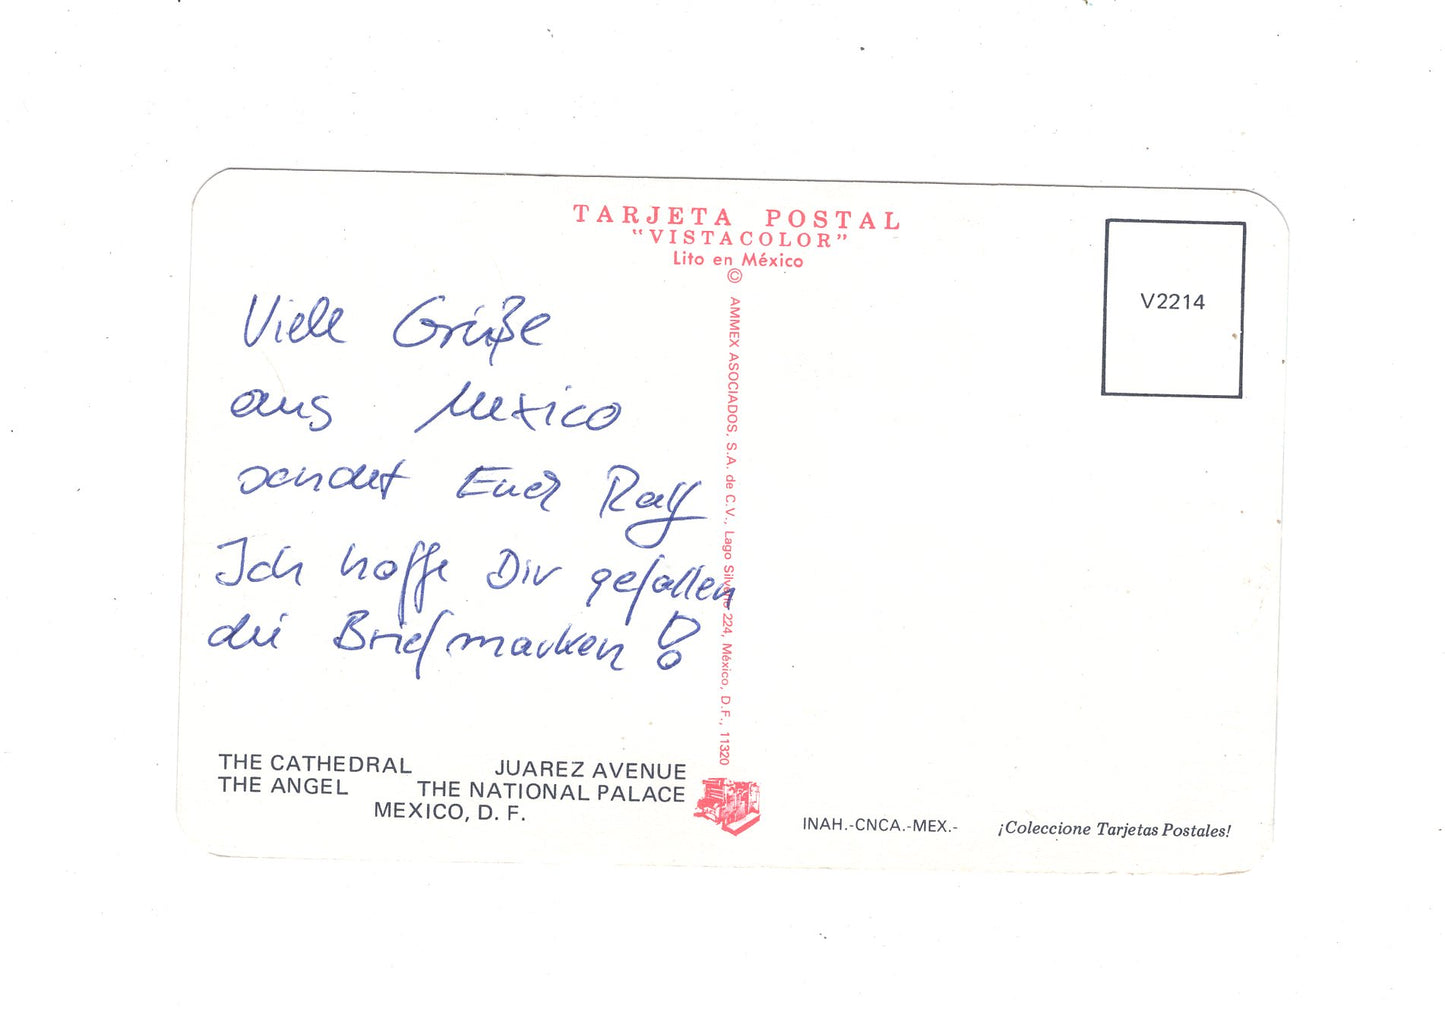 TARJETA POSTAL
"VISTACOLOR"
Lito en México
©
AMMEX ASOCIADOS, S.A. de C.V., Lago Silverio 224, México, D.F., 11320
V2214
Viele Grüße
aus Mexico
sendet Euch Ralf
Ich hoffe Dir gefallen
die Briefmarken !
THE CATHEDRAL JUAREZ AVENUE
THE ANGEL THE NATIONAL PALACE
MEXICO, D. F.
INAH.-CNCA.-MEX.- ¡Coleccione Tarjetas Postales!